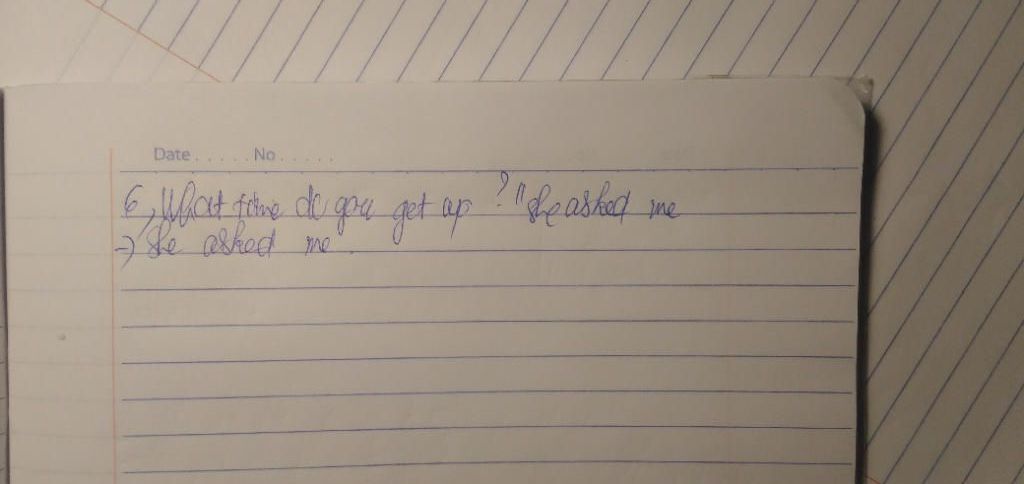 Date..... No.....
6, What time do you get up ?" she asked me
→ She asked me .